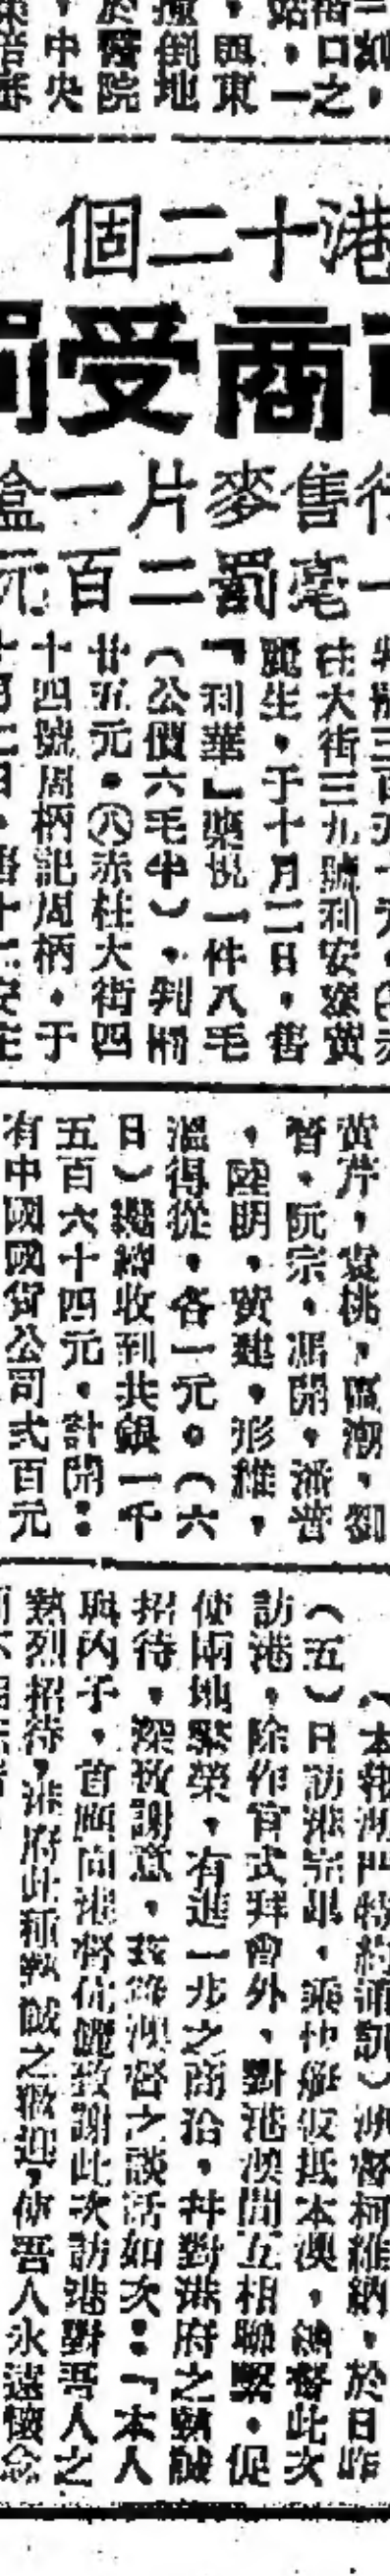 三刻，
街口之
站，一
，與東
撞倒地
於醫院
，中央
港十二個
商受罰
售麥片一盒
一毫罰二百元
柱大街三九號利安黃
麗生，于十月二日，售
「利華」藥梘一件八毛
（公價六毛半），判罰
廿五元。㈧赤柱大街四
十四號周柄記周柄，于
黃芹，袁桃，區潮，
晉，阮宗，馮開，潘普
，陸明，黃建，形維，
溫得從，各一元。（六
日）繼續收到共銀一千
五百六十四元，計開：
有中國國貨公司式百元
（本報澳門特約通訊）澳督柯維納，於日昨
（五）日訪港完畢，乘炮艇返抵本澳，納督此次
訪港，除作官式拜會外，對港澳間互相聯繫，促
使兩地繁榮，有進一步之商洽，並對港府之熱誠
招待，深致謝意，茲錄澳督之談話如次：「本人
與內子，首願向港督伉儷致謝此次訪港對吾人之
熱烈招待，港府此種熱誠之歡迎，使吾人永遠懷念